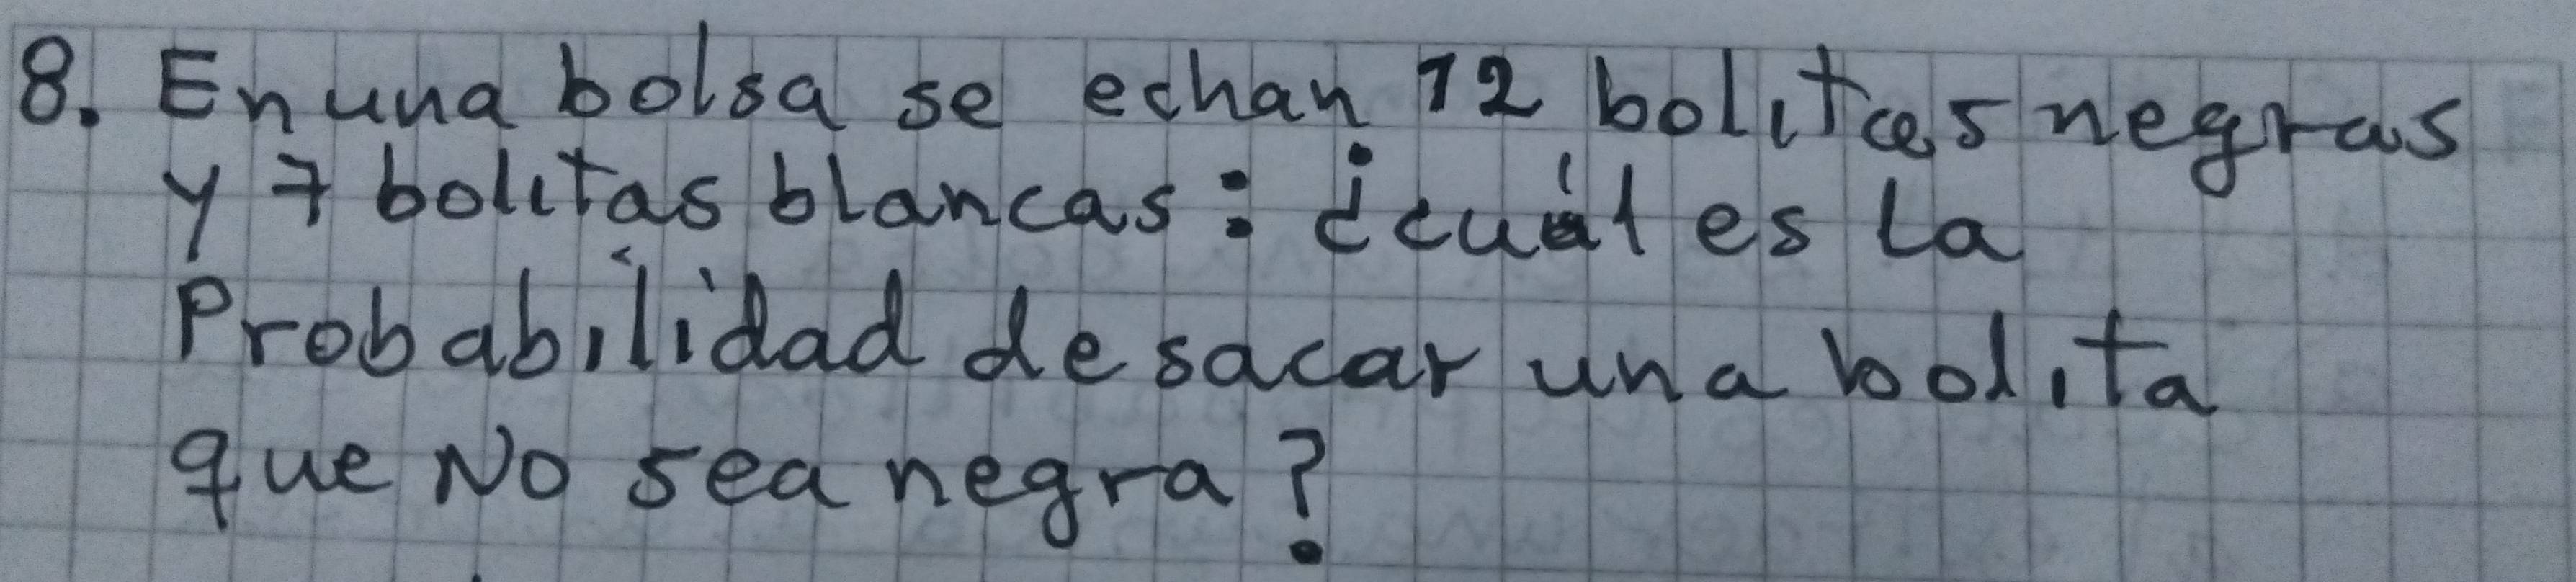 8. En una bolsa se echan 12 bolitas negras
y 7 bolitas blancas: ¿cuál es la
Probabilidad de sacar una bolita
que No sea negra?